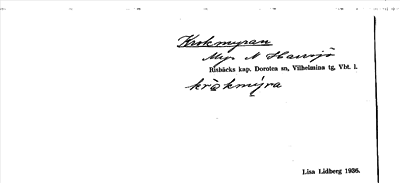 Krokmyran
Myr N Hansjö
Risbäcks kap. Dorotea sn, Vilhelmina tg, Vbt. l.
krò̀kmýra
Lisa Lidberg 1936.